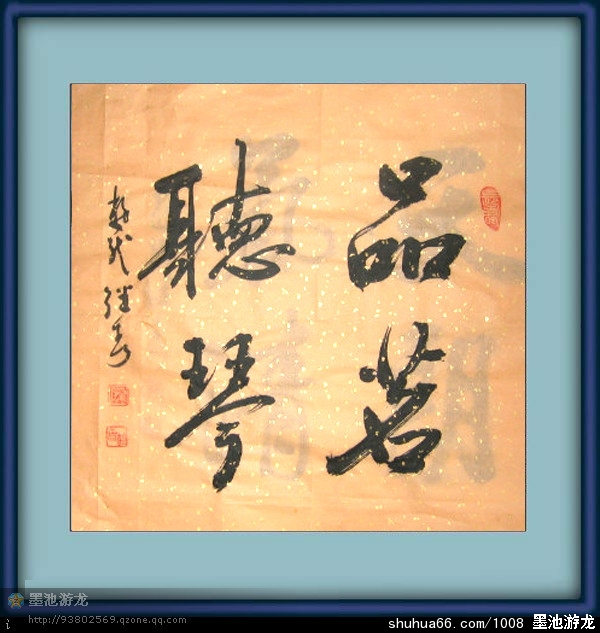 品茗
聽琴
墨池游龙
http://93802569.qzone.qq.com
shuhua66.com/1008 墨池游龙